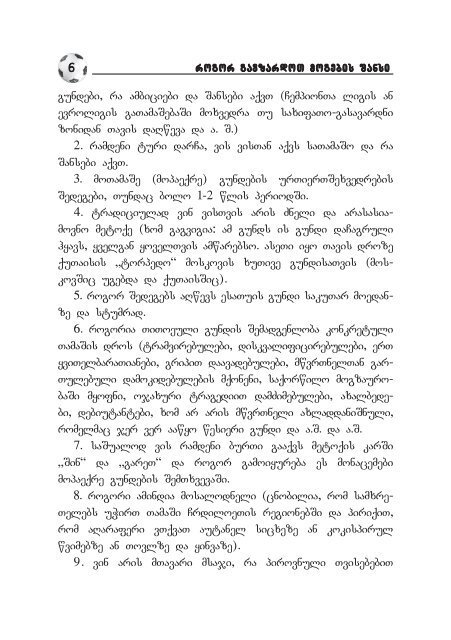 6
როგორ გავზარდოთ მოგების შანსი
გუნდები, რა ამბიციები და შანსები აქვთ (ჩემპიონთა ლიგის ან
ევროლიგის გათამაშებაში მოხვედრა თუ სახიფათო-გასავარდნი
ზონიდან თავის დაღწევა და ა. შ.)
2. რამდენი ტური დარჩა, ვის ვისთან აქვს სათამაშო და რა
შანსები აქვთ.
3. მოთამაშე (მოპაექრე) გუნდების ურთიერთშეხვედრების
შედეგები, თუნდაც ბოლო 1-2 წლის პერიოდში.
4. ტრადიციულად ვინ ვისთვის არის ძნელი და არასასია-
მოვნო მეტოქე (ხომ გაგვიგია: ამ გუნდს ის გუნდი დაჩაგრული
ჰყავს, ყველგან ყოველთვის ამწარებსო. ასეთი იყო თავის დროზე
ქუთაისის „ტორპედო“ მოსკოვის ხუთივე გუნდისათვის (მოს-
კოვშიც უგებდა და ქუთაისშიც).
5. როგორ შედეგებს აღწევს ესათუის გუნდი საკუთარ მოედან-
ზე და სტუმრად.
6. როგორია თითოეული გუნდის შემადგენლობა კონკრეტული
თამაშის დროს (ტრამვირებულები, დისკვალიფიცირებულები, ერთ
ყვითელბარათიანები, გრიპით დაავადებულები, მწვრთნელთან გარ-
თულებული დამოკიდებულების მქონენი, საქორწილო მოგზაურო-
ბაში მყოფნი, ოჯახური ტრაგედიით დამძიმებულები, ახალბედე-
ბი, დებიუტანტები, ხომ არ არის მწვრთნელი ახლადდანიშნული,
რომელმაც ჯერ ვერ ააწყო წესიერი გუნდი და ა.შ. და ა.შ.
7. საშუალოდ ვის რამდენი ბურთი გააქვს მეტოქის კარში
„შინ“ და „გარეთ“ და როგორ გამოიყურება ეს მონაცემები
მოპაექრე გუნდების შემთხვევაში.
8. როგორი ამინდია მოსალოდნელი (ცნობილია, რომ სამხრე-
თელებს უჭირთ თამაში ჩრდილოეთის რეგიონებში და პირიქით,
რომ აღარაფერი ვთქვათ აუტანელ სიცხეზე ან კოკისპირულ
წვიმებზე ან თოვლზე და ყინვაზე).
9. ვინ არის მთავარი მსაჯი, რა პიროვნული თვისებებით